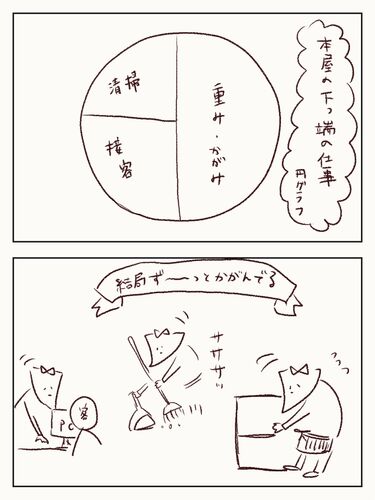 本屋の下っ端の仕事
円グラフ
重み・かがみ
清掃
接客
結局ず〜〜っとかがんでる
PC
客
ササササッ